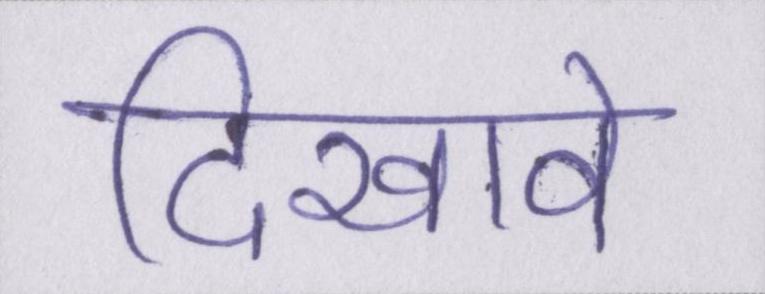 दिखावे